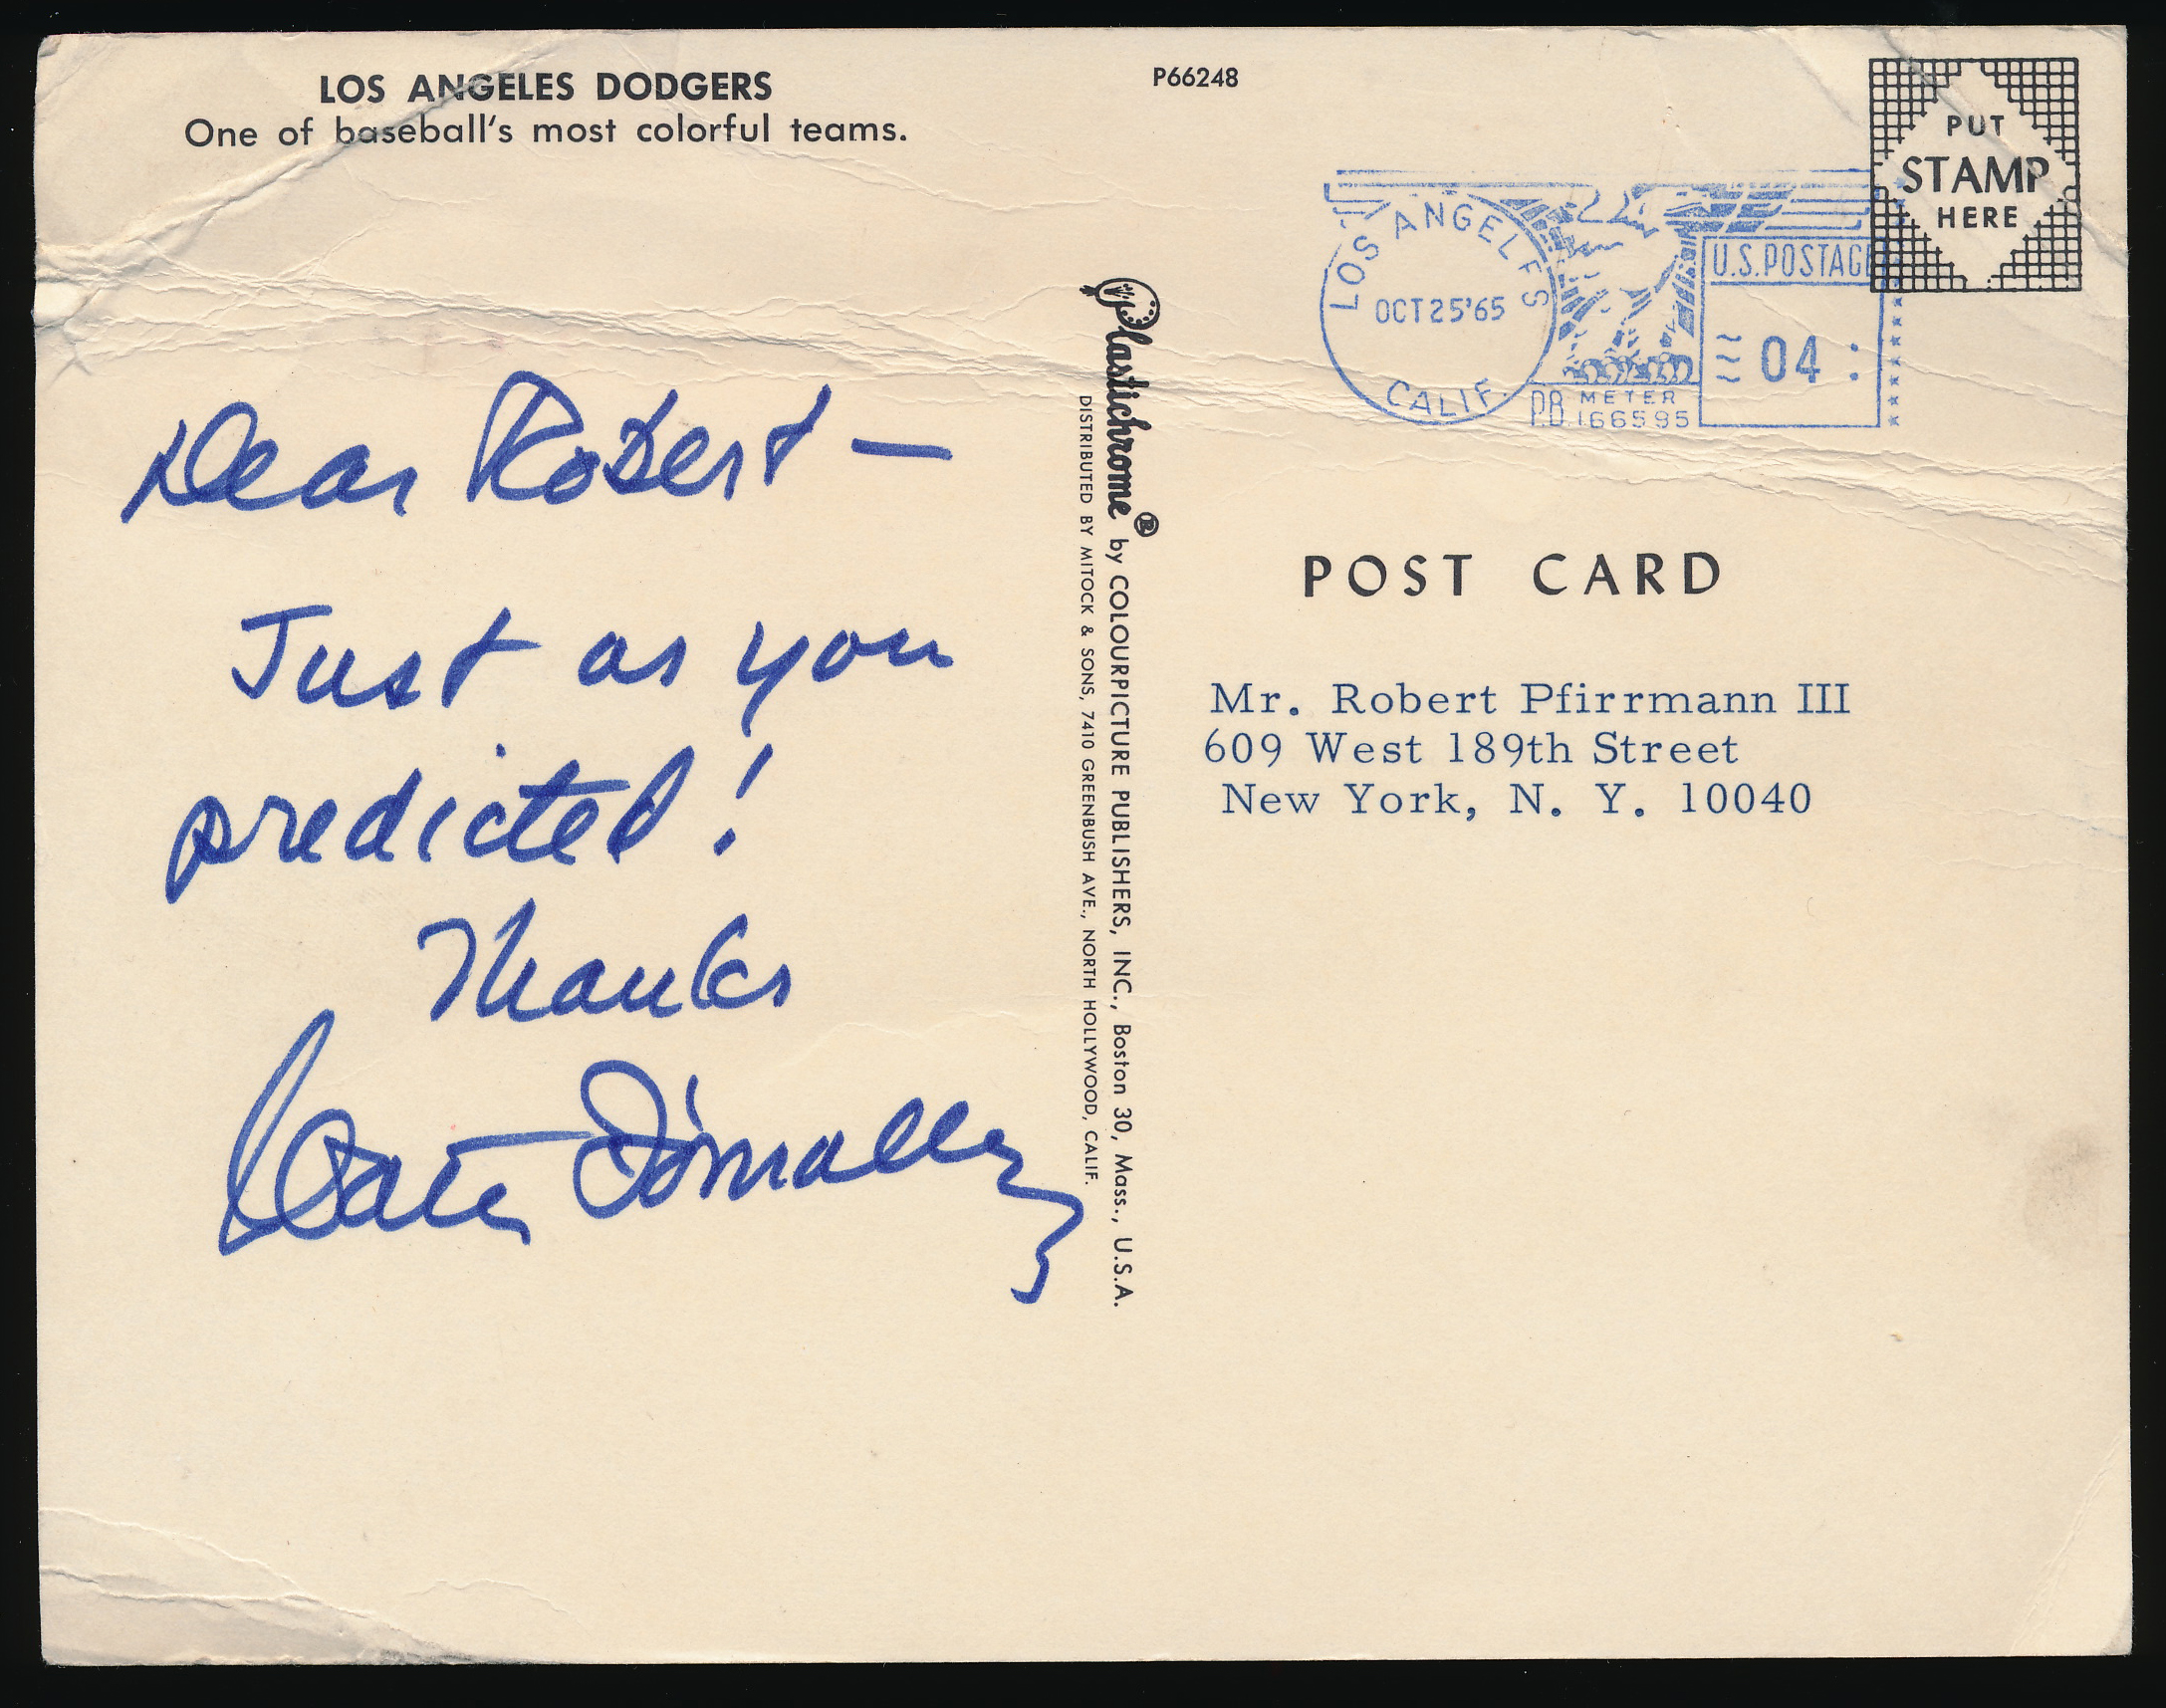 LOS ANGELES DODGERS
One of baseball's most colorful teams.
P66248
PUT
STAMP
HERE
LOS ANGELES
OCT 25 '65
CALIF.
P.B. METER
166595
U.S. POSTAGE
04
Dear Robert —
Just as you
predicted!
Thanks
Walter O'Malley
Plastichrome® by COLOURPICTURE PUBLISHERS, INC., Boston 30, Mass., U.S.A.
DISTRIBUTED BY MITOCK & SONS, 7410 GREENBUSH AVE., NORTH HOLLYWOOD, CALIF.
POST CARD
Mr. Robert Pfirrmann III
609 West 189th Street
New York, N. Y. 10040